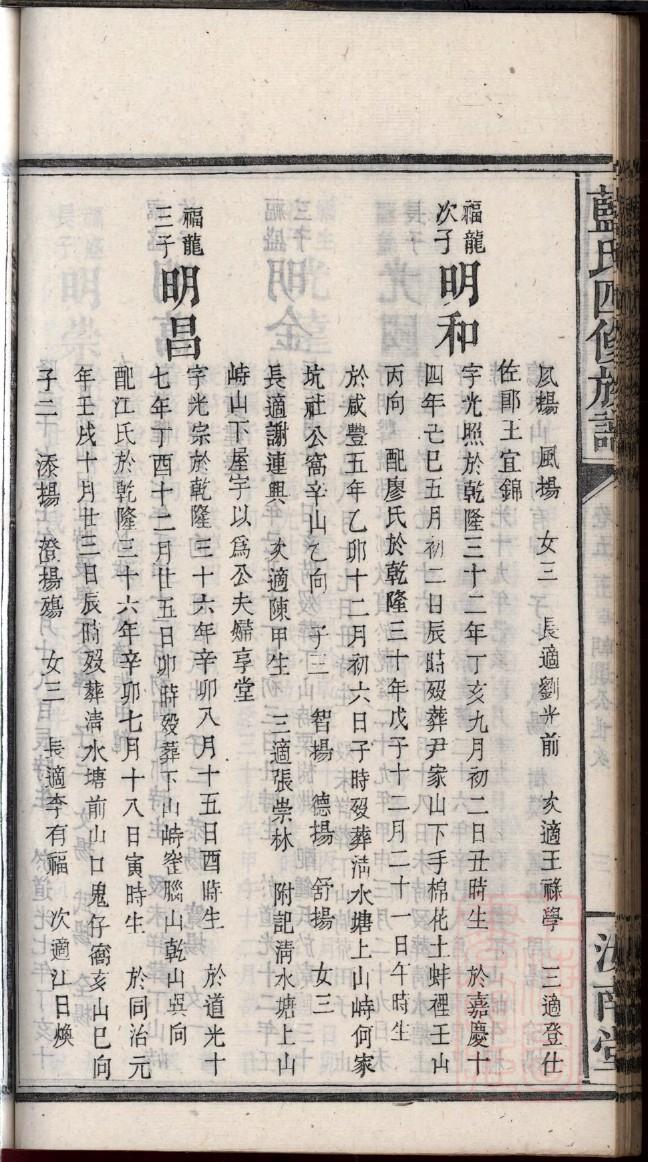 藍氏四修族譜
汝南堂
鳳揚　風揚　女三　長適劉光前　次適王祿學　三適登仕
佐郎王宜錦
福龍
次子
明和
字光照於乾隆三十二年丁亥九月初二日丑時生　於嘉慶十
四年己巳五月初二日辰時歿葬尹家山下手棉花土蚌裡壬山
丙向　配廖氏於乾隆三十年戊子十二月二十一日午時生
於咸豐五年乙卯十二月初六日子時歿葬清水塘上山峙何家
坑社公窩辛山乙向　子三　智揚　德揚　舒揚　女三
長適謝連興　次適陳甲生　三適張崇林　附記清水塘上山
峙山下屋宇以爲公夫婦享堂
福龍
三子
明昌
字光宗於乾隆三十六年辛卯八月十五日酉時生　於道光十
七年丁酉十二月廿五日卯時歿葬下山峙窰腦山乾山巽向
配江氏於乾隆三十六年辛卯七月十八日寅時生　於同治元
年壬戌十月廿三日辰時歿葬清水塘前山口鬼仔窩亥山巳向
子二　添揚　澄揚殤　女三　長適李有福　次適江日煥